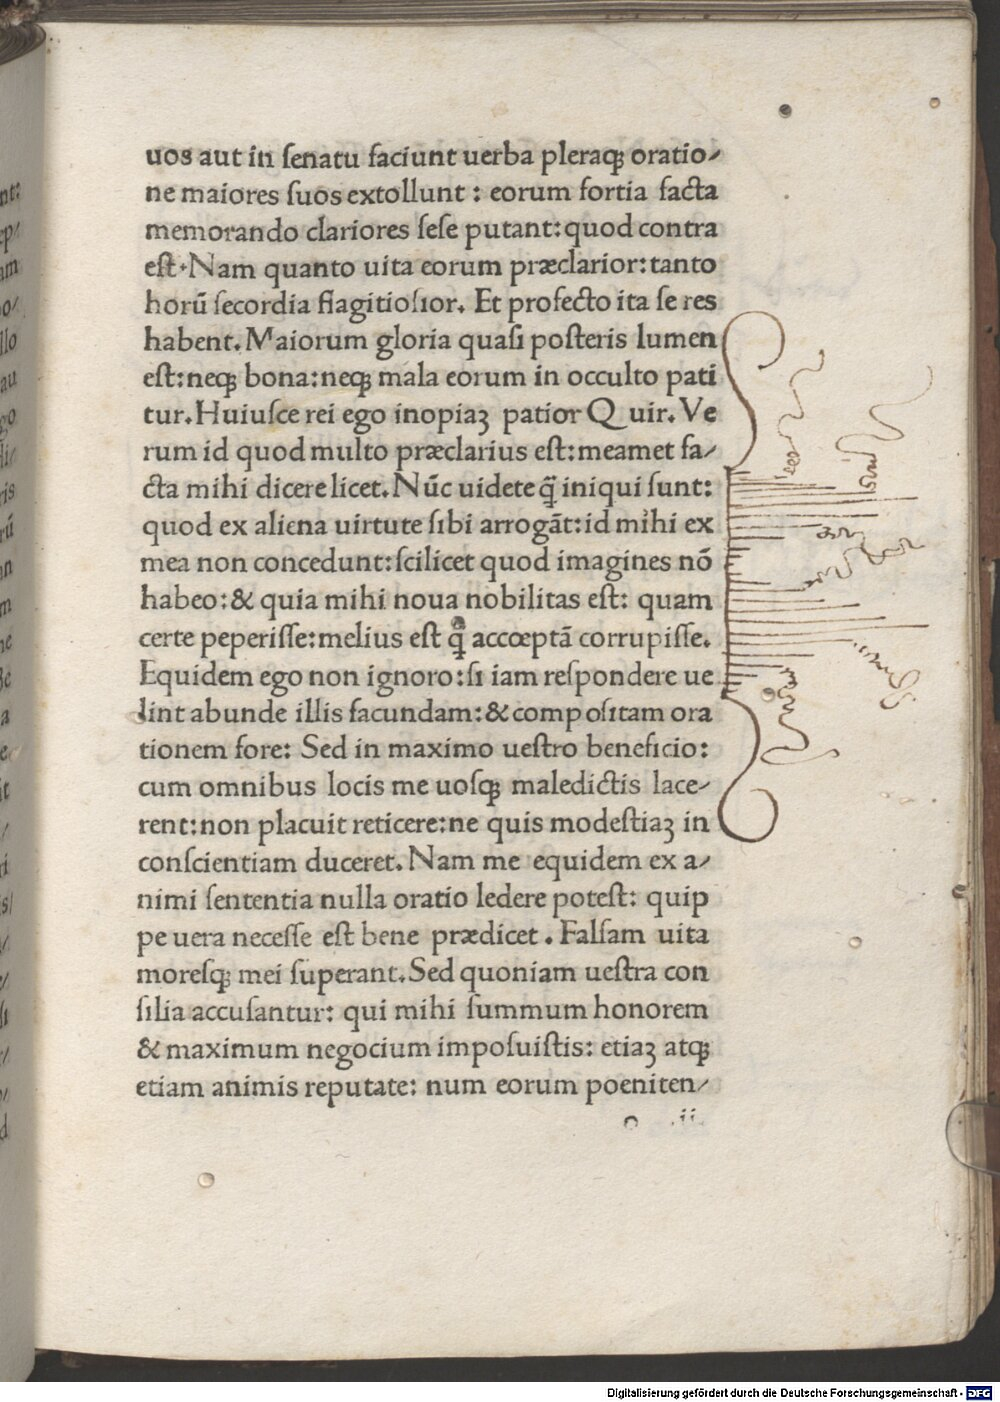 uos aut in ſenatu faciunt uerba pleraqꝫ oratio⸗
ne maiores ſuos extollunt : eorum fortia facta
memorando clariores ſeſe putant: quod contra
eſt. Nam quanto uita eorum præclarior: tanto
horū ſecordia flagitioſior. Et profecto ita ſe res
habent. Maiorum gloria quaſi poſteris lumen
eſt: neqꝫ bona: neqꝫ mala eorum in occulto pati
tur. Huiuſce rei ego inopiaꝫ patior Quir. Ve
rum id quod multo præclarius eſt: meamet fa⸗
cta mihi dicere licet. Nūc uidete q̃ iniqui ſunt:
quod ex aliena uirtute ſibi arrogāt: id mihi ex
mea non concedunt: ſcilicet quod imagines nō
habeo: & quia mihi noua nobilitas eſt: quam
certe peperiſſe: melius eſt q̃ accœptā corrupiſſe.
Equidem ego non ignoro: ſi iam reſpondere ue
lint abunde illis facundam: & compoſitam ora
tionem fore: Sed in maximo ueſtro beneficio:
cum omnibus locis me uoſqꝫ maledictis lace⸗
rent: non placuit reticere: ne quis modeſtiaꝫ in
conſcientiam duceret. Nam me equidem ex a⸗
nimi ſententia nulla oratio ledere poteſt: quip
pe uera neceſſe eſt bene prædicet. Falſam uita
moreſqꝫ mei ſuperant. Sed quoniam ueſtra con
ſilia accuſantur: qui mihi ſummum honorem
& maximum negocium impoſuiſtis: etiaꝫ atqꝫ
etiam animis reputate: num eorum poeniten⸗
o .ii.
Digitalisierung gefördert durch die Deutsche Forschungsgemeinschaft - DFG